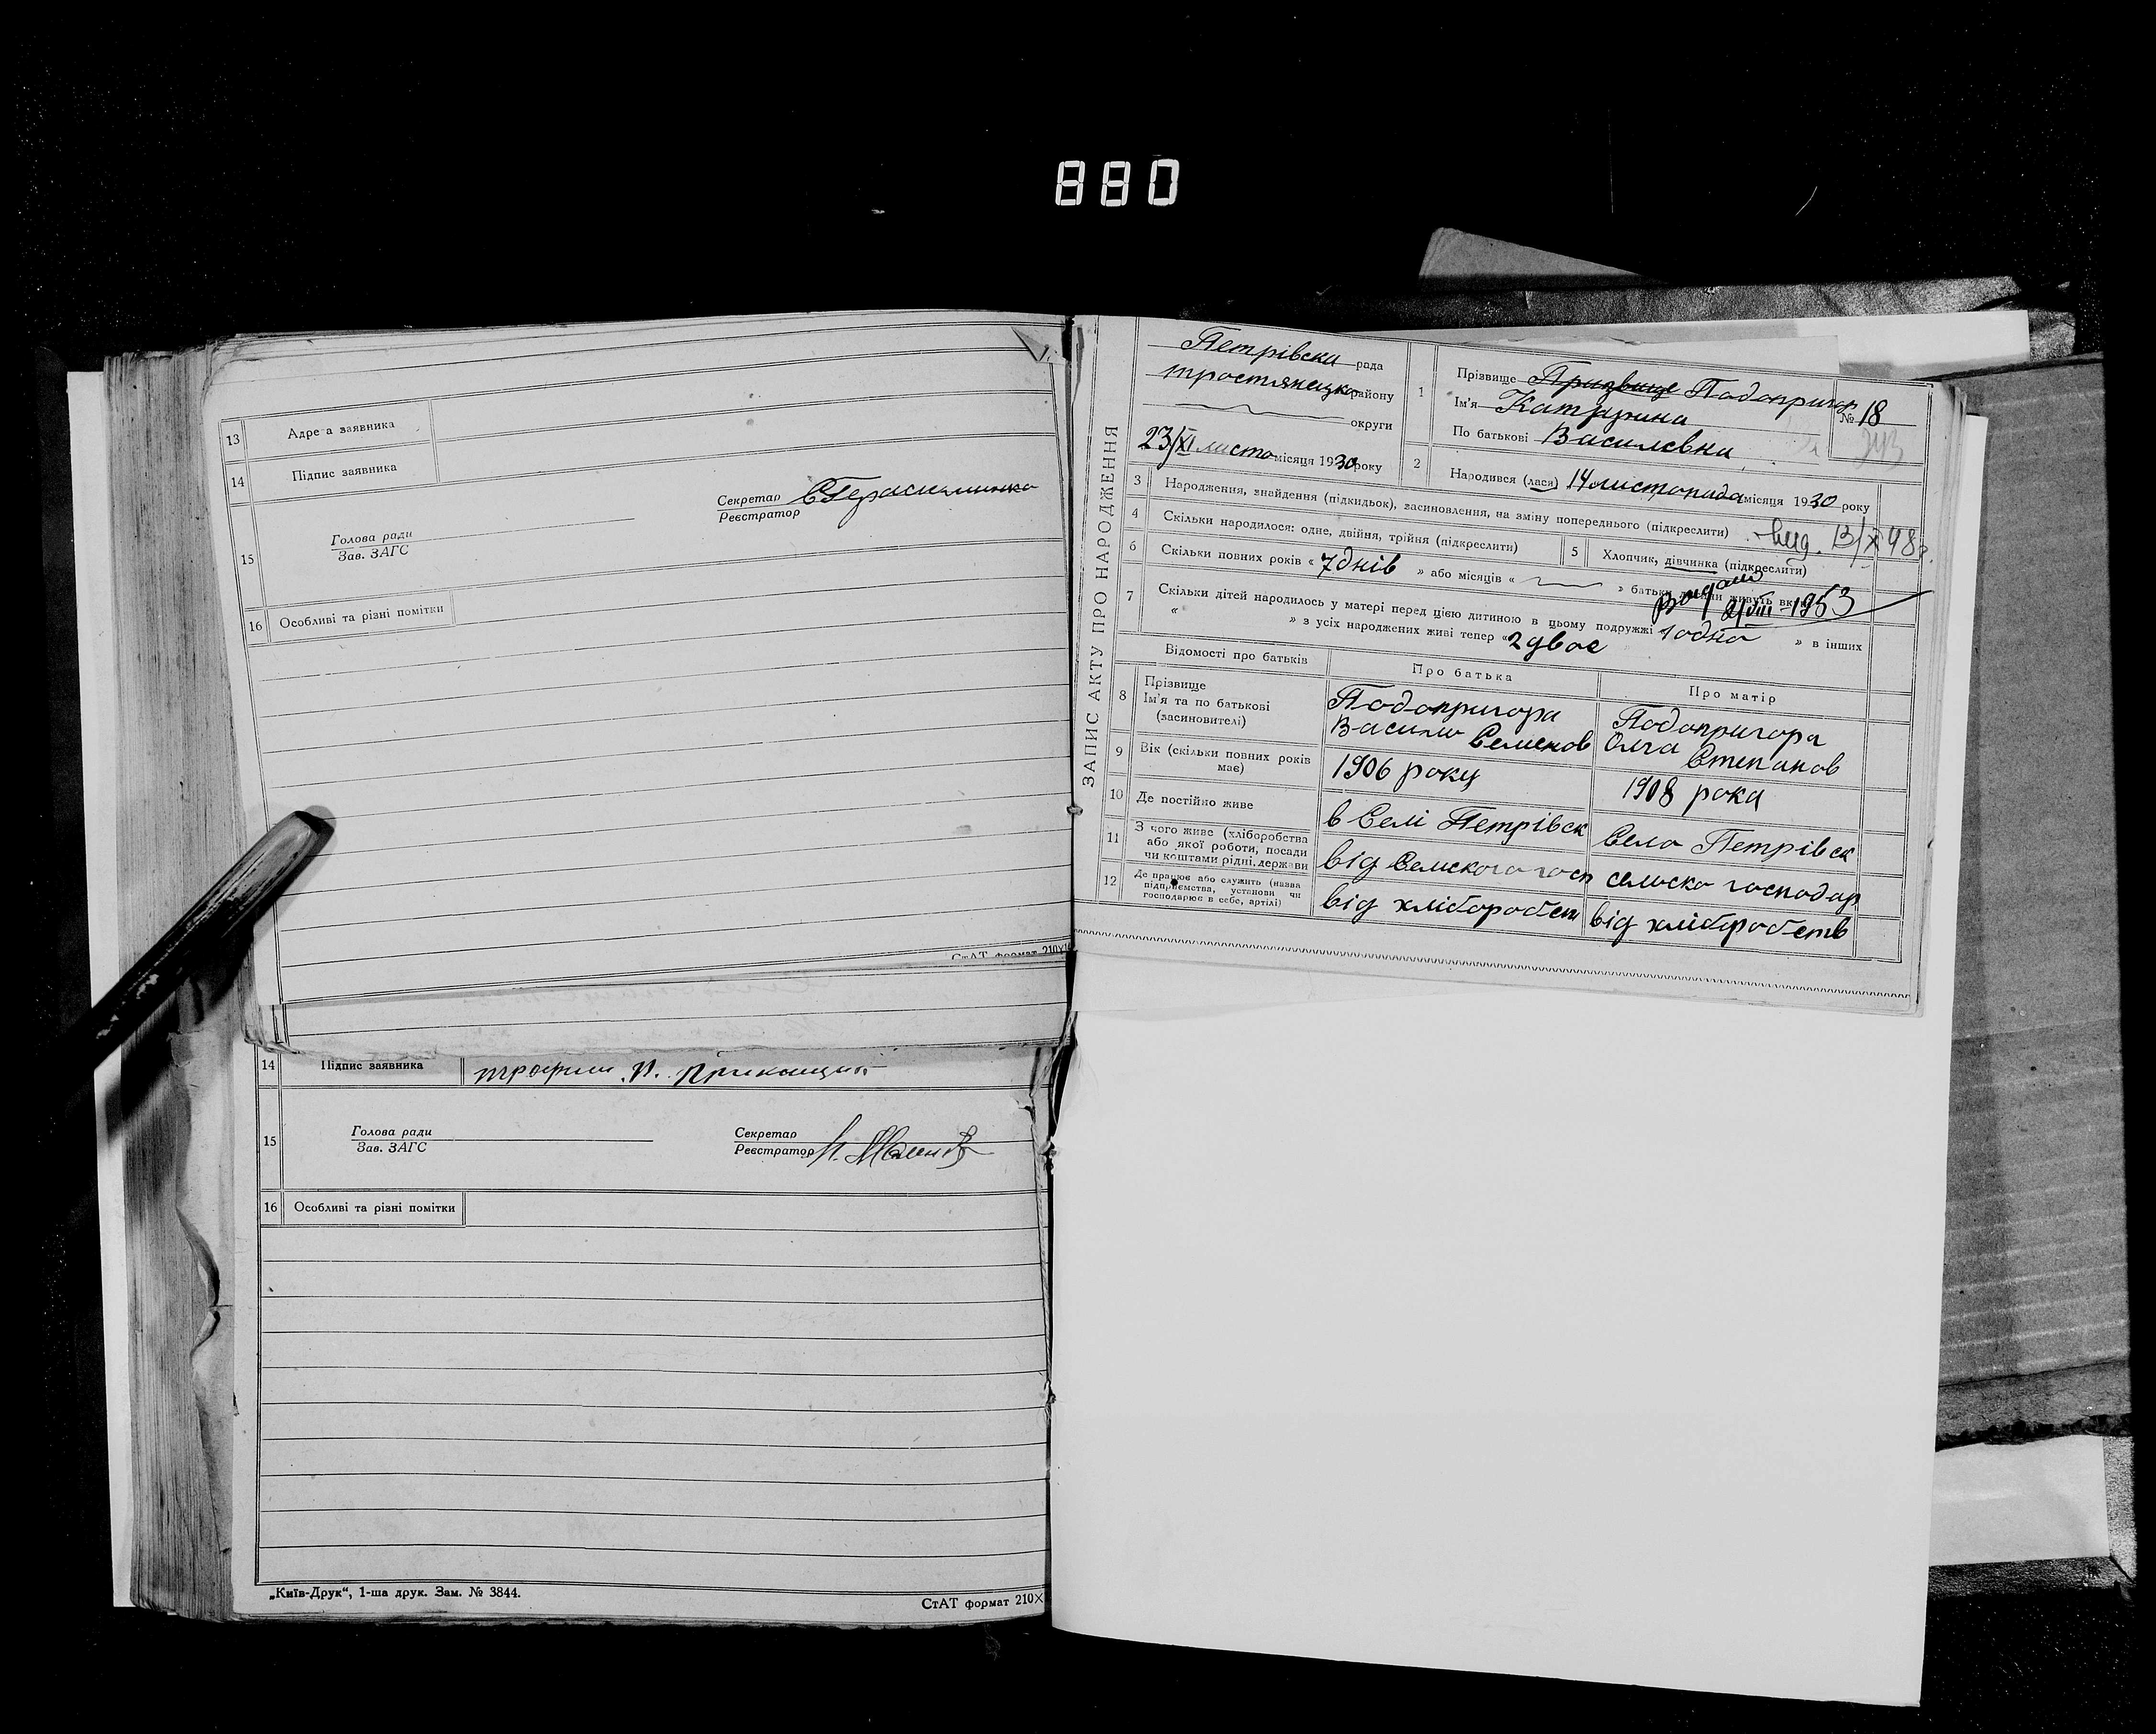 880
13 Адреса заявника
14 Підпис заявника
15 Голова ради
Зав. ЗАГС
Секретар
Реєстратор
16 Особливі та різні помітки
СтАТ формат 210×1
14 Підпис заявника
15 Голова ради
Зав. ЗАГС
Секретар
Реєстратор
16 Особливі та різні помітки
„Київ-Друк“, 1-ша друк. Зам. № 3844.
СтАТ формат 210×
ЗАПИС АКТУ ПРО НАРОДЖЕННЯ
Петрівска рада
тростянецко району
округи
23/XI листо місяця 1930 року
1 Прізвище Призвище Подопригор
Ім'я Катрина
По батькові Василевна
№ 18
2 Народився (лася) 14 листопада місяця 1930 року
3 Народження, знайдення (підкидьок), засиновлення, на зміну попереднього (підкреслити)
вид. 13/X 48г.
4 Скільки народилося: одне, двійня, трійня (підкреслити)
5 Хлопчик, дівчинка (підкреслити)
6 Скільки повних років « 7 днів » або місяців « » батьки живуть вк
2/VIII-1953
7 Скільки дітей народилось у матері перед цією дитиною в цьому подружжі « 1 одна » в інших
« » з усіх народжених живі тепер « 2 двоє
Відомості про батьків
Про батька
Про матір
8 Прізвище
Ім'я та по батькові
(засиновителі)
Подопригора
Васили Семенов
Подопригора
Олга
Степанов
9 Вік (скільки повних років
має)
1906 року
1908 рока
10 Де постійно живе
в Селі Петрівск
Село Петрівск
11 З чого живе (хліборобства
або якої роботи, посади
чи коштами рідні, держави
від Селского госп
селско господар
12 Де працює або служить (назва
підприємства, установи чи
господарює в себе, артілі)
від хліборобст
від хліборобств